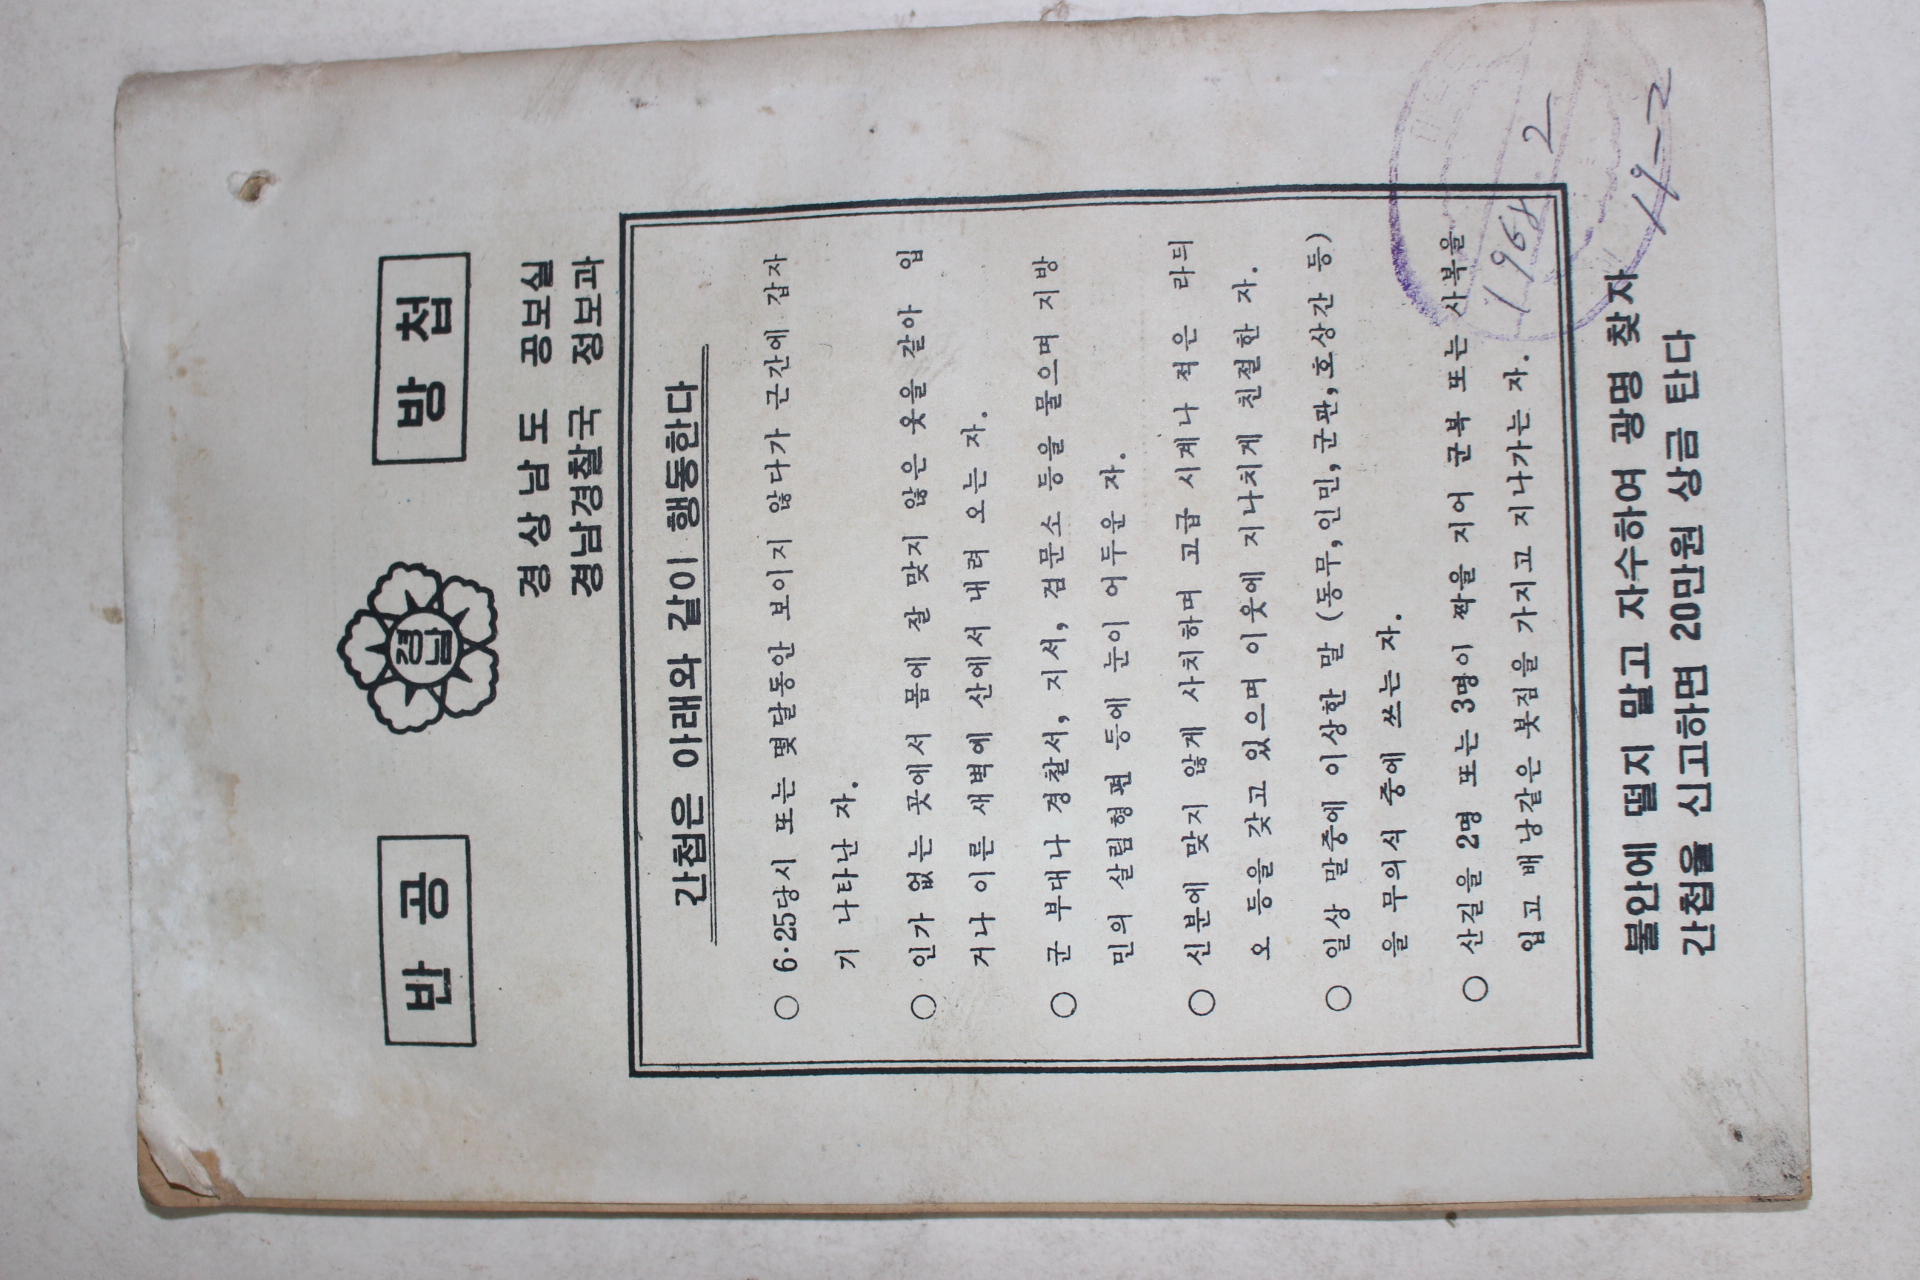 반공
경남
방첩
경상남도 공보실
경남경찰국 정보과
간첩은 아래와 같이 행동한다
○ 6·25당시 또는 몇달동안 보이지 않다가 근간에 갑자
기 나타난 자.
○ 인가 없는 곳에서 몸에 잘 맞지 않은 옷을 갈아 입
거나 이른 새벽에 산에서 내려 오는 자.
○ 군 부대나 경찰서, 지서, 검문소 등을 물으며 지방
민의 살림형편 등에 눈이 어두운 자.
○ 신분에 맞지 않게 사치하며 고급 시계나 적은 라듸
오 등을 갖고 있으며 이웃에 지나치게 친절한 자.
○ 일상 말중에 이상한 말 (동무,인민,군관,호상간 등)
을 무의식 중에 쓰는 자.
○ 산길을 2명 또는 3명이 짝을 지어 군복 또는 사복을
입고 배낭같은 봇짐을 가지고 지나가는 자.
불안에 떨지 말고 자수하여 광명 찾자
간첩을 신고하면 20만원 상금 탄다